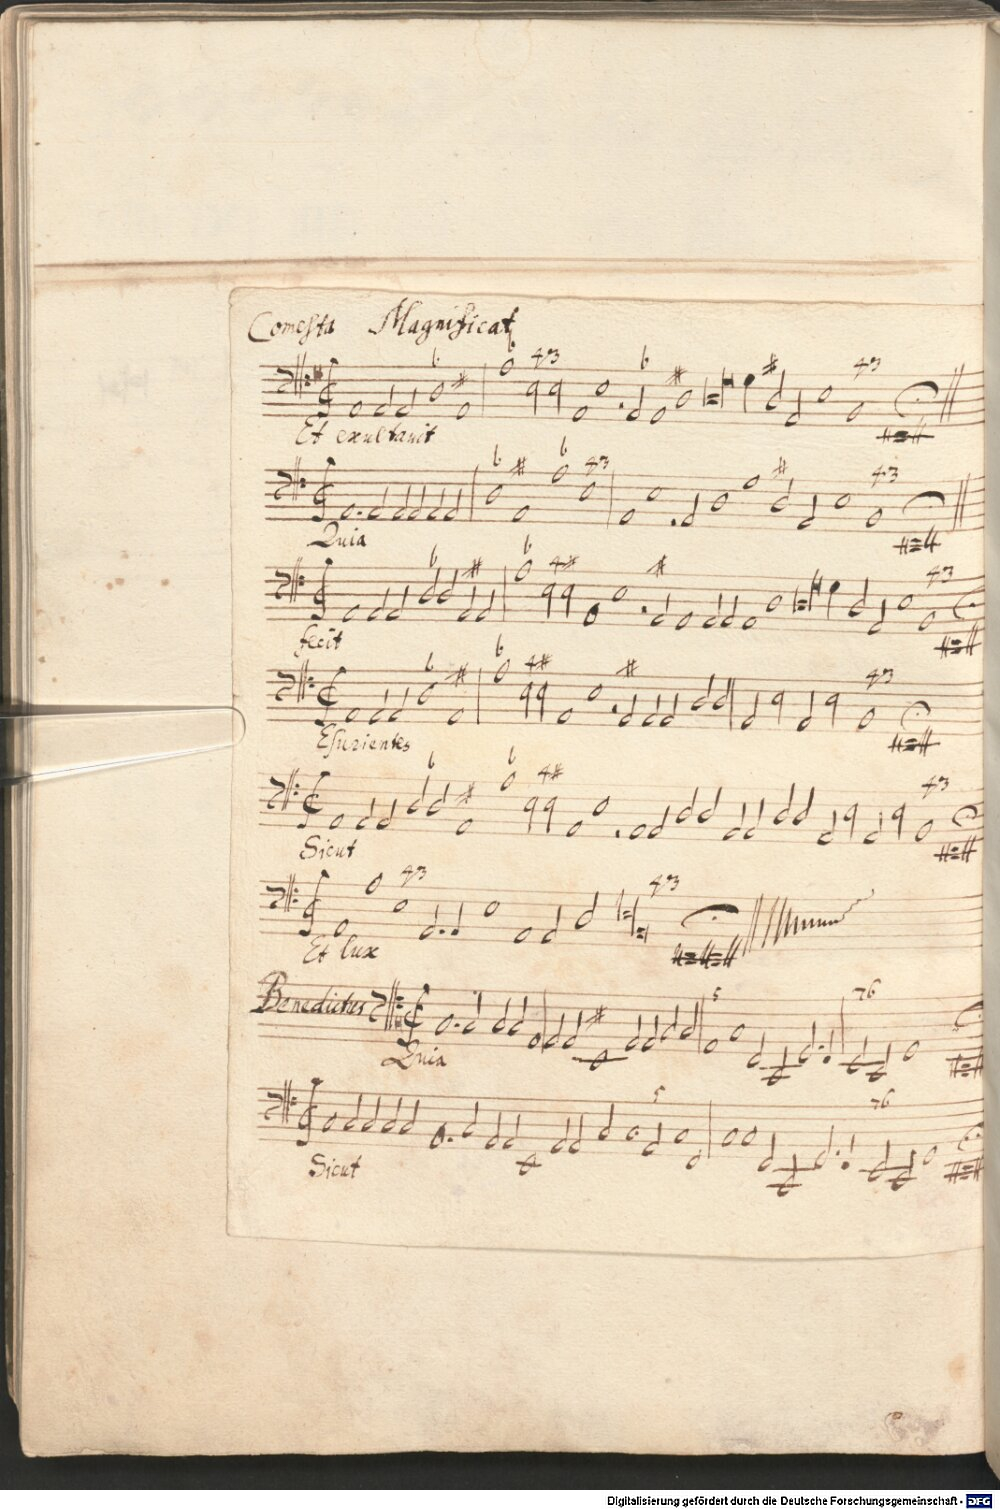 Comesta Magnificat
Et exultavit
Quia
fecit
Esurientes
Sicut
Et lux
Benedictus
Quia
Sicut
Digitalisierung gefördert durch die Deutsche Forschungsgemeinschaft - DFG